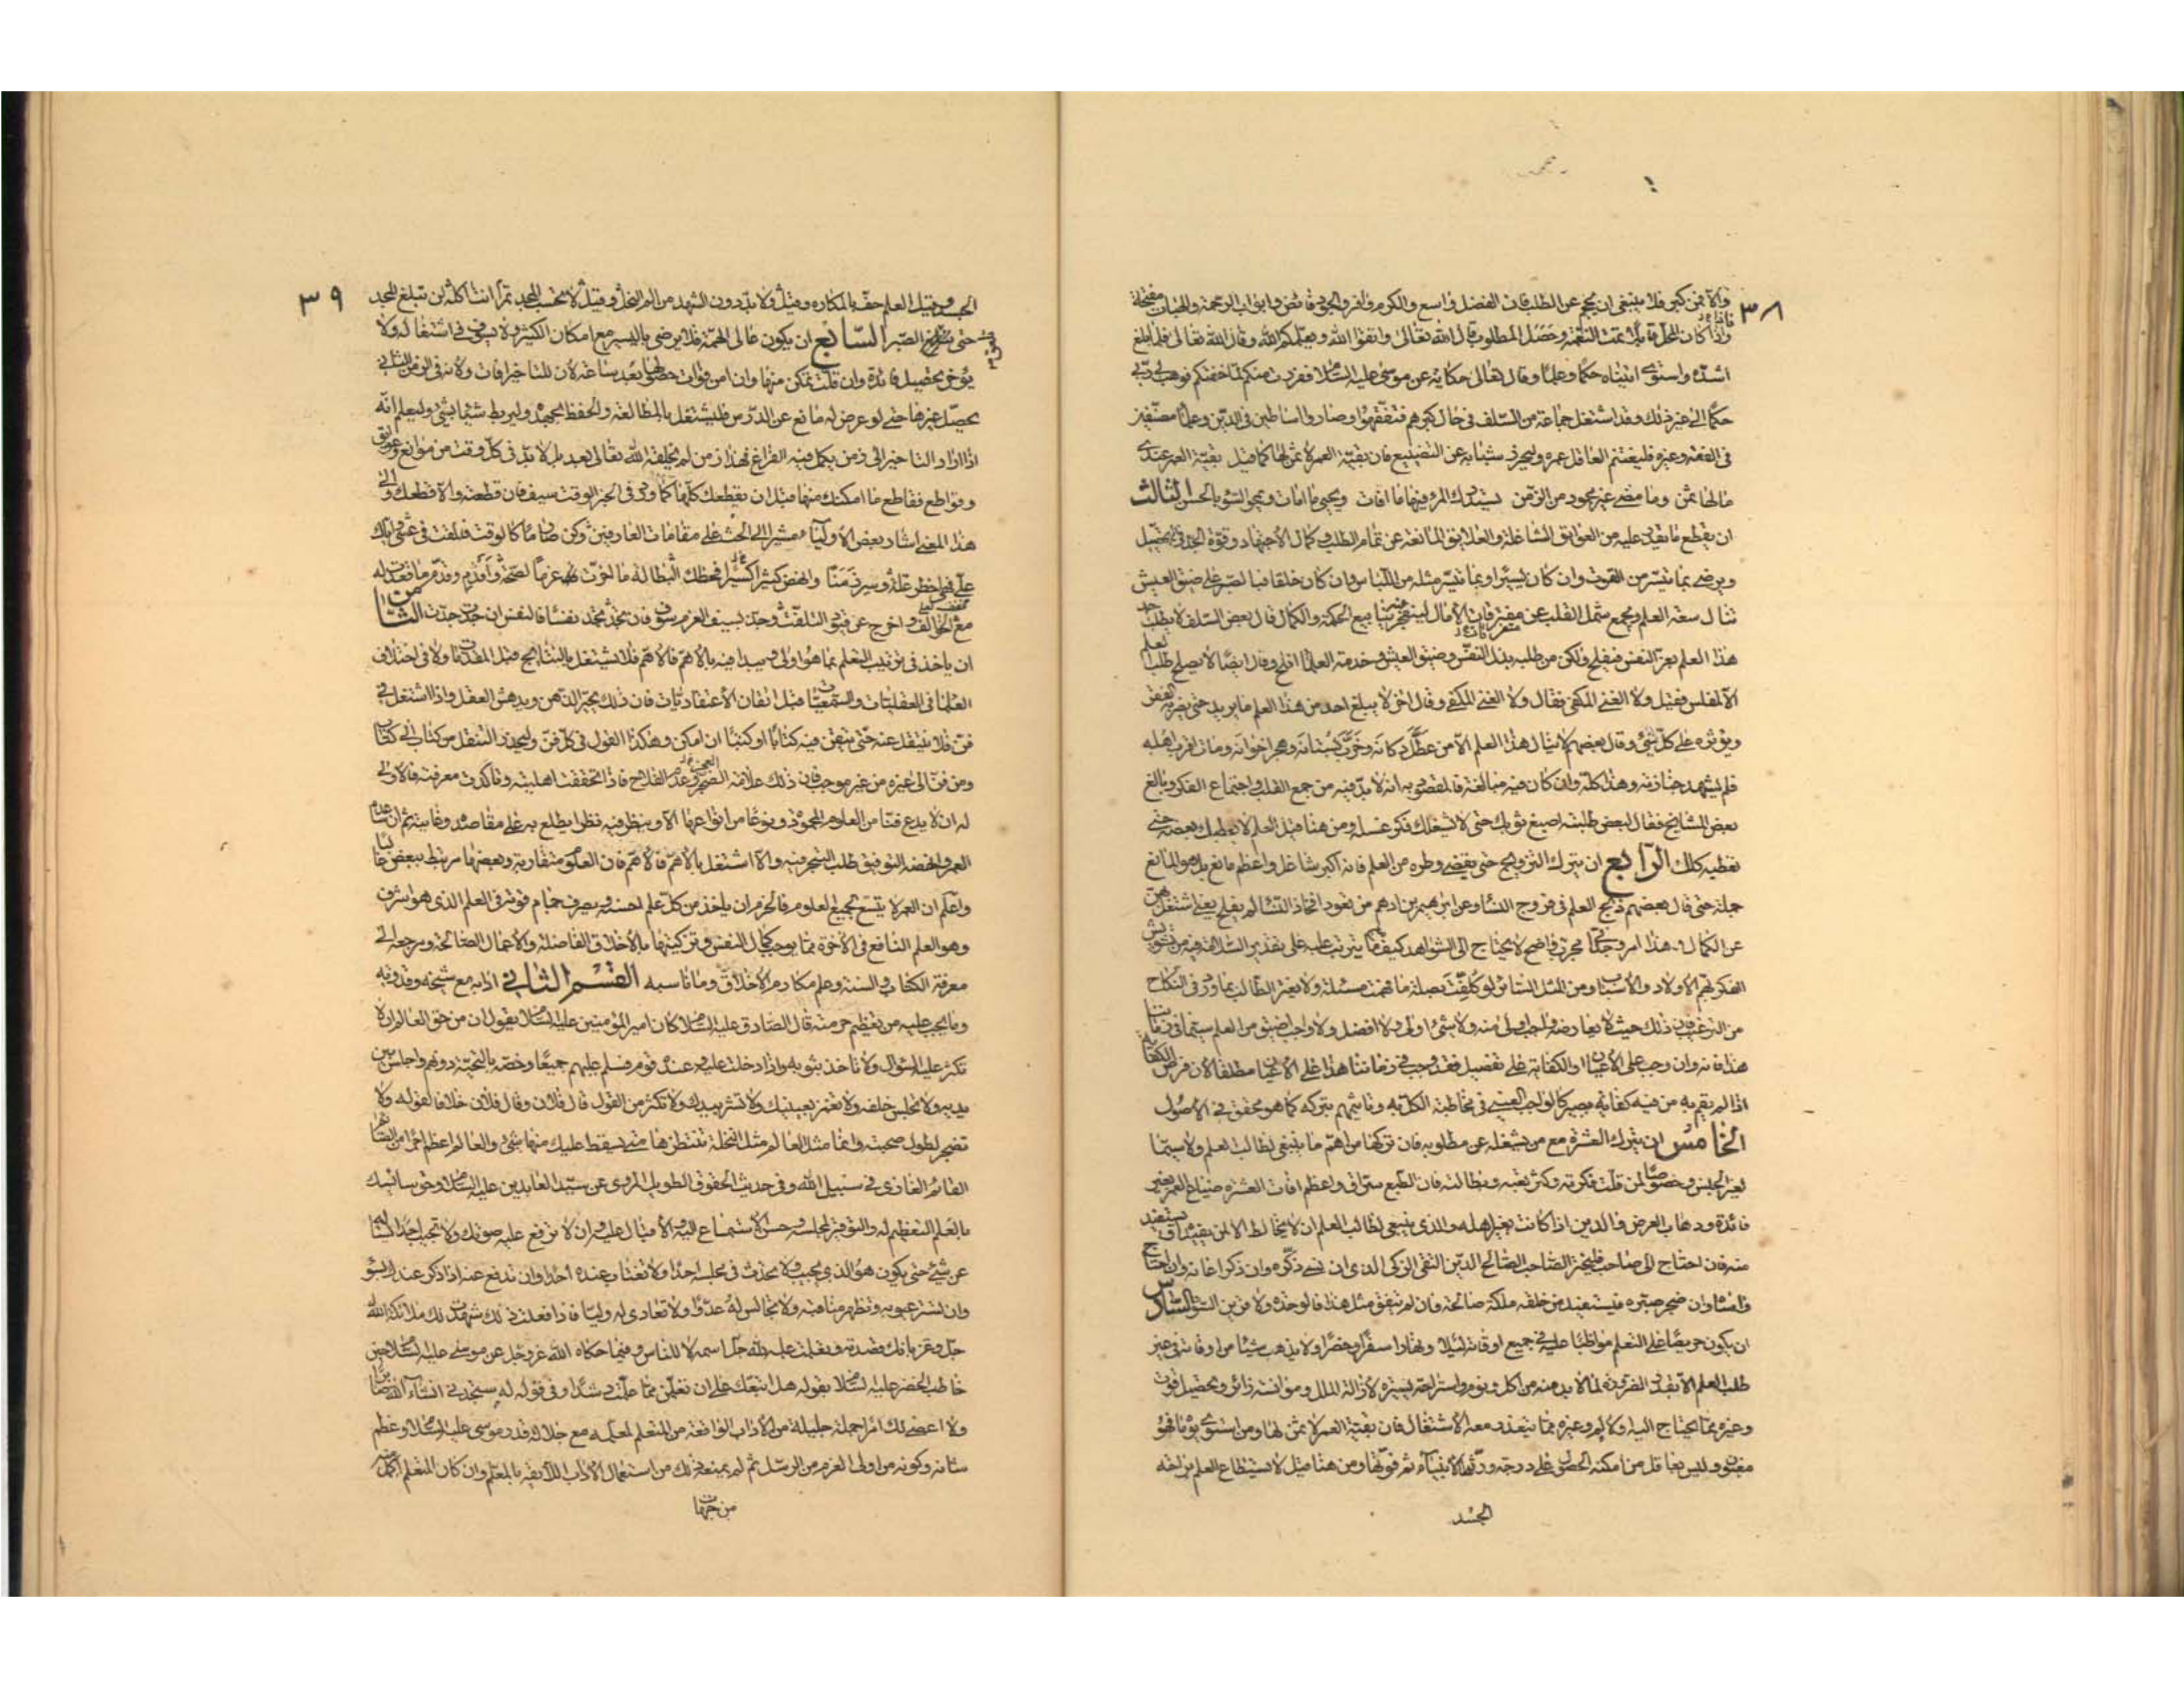 ٣٨
والا فمن كبر فلا ينبغي ان يحجم عن الطلب فان الفضل واسع والكرم وافر والجود فائض وابواب الرحمة والهبات مفتحة
واذا كان المحل قابلا تمت النعمة وحصل المطلوب قال الله تعالى واتقوا الله ويعلمكم الله وقال الله تعالى فلما بلغ
اشده واستوى اتيناه حكما وعلما وقال تعالى حكاية عن موسى عليه السلام ففررت منكم لما خفتكم فوهب لي ربي
حكما الى غير ذلك وقد اشتغل جماعة من السلف في حال كبرهم فتفقهوا وصاروا اساطين في الدين وعلماء مصنفين
في الفقه وغيره فليغتنم العاقل عمره وليحرز شبابه عن التضييع فان بقية العمر لا ثمن لها كما قيل بقية العمر عندي
ما لها ثمن وما مضى غير محمود من الزمن يستدرك المرء فيها ما افات ويحيي ما امات ويمحو السوء بالحسن الثالث
ان يقطع ما يقدر عليه من العوائق الشاغلة والعلائق المانعة عن تمام الطلب وكمال الاجتهاد وقوة الجد في التحصيل
ويرضى بما تيسر من القوت وان كان يسيرا وبما تيسر مثله من اللباس وان كان خلقا فبالصبر على ضيق العيش
تنال سعة العلم ويجمع شمل القلب عن مفترقات الامال ليتفجر عنه ينابيع الحكمة والكمال قال بعض السلف لا يطلب احد
هذا العلم بعز النفس فيفلح ولكن من طلبه بذل النفس وضيق العيش وخدمة العلماء افلح وقال ايضا لا يصلح طلب العلم
الا لمفلس فقيل ولا الغني المكفي فقال ولا الغني المكفي وقال اخر لا يبلغ احد من هذا العلم ما يريد حتى يضر به الفقر
ويؤثره على كل شيء وقال بعضهم لا ينال هذا العلم الا من عطل دكانه وخرب بستانه وهجر اخوانه ومات اقرب اهله
فلم يشهد جنازته وهذا كله وان كان فيه مبالغة فالمقصود به انه لا بد فيه من جمع القلب واجتماع الفكر وبالغ
بعض المشايخ فقال لبعض طلبته اصبغ ثوبك حتى لا يشغلك فكر غسله ومن هنا قيل العلم لا يعطيك بعضه حتى
تعطيه كلك الرابع ان يترك التزويج حتى يقضي وطره من العلم فانه اكبر شاغل واعظم مانع بل هو المانع
جملة حتى قال بعضهم ذبح العلم في فروج النساء وعن ابراهيم بن ادهم من تعود افخاذ النساء لم يفلح يعني اشتغل بهن
عن الكمال وهذا امر وجداني مجرب واضح لا يحتاج الى الشواهد كيف مع ما يترتب عليه على تقدير السلامة فيه من تشويش
الفكر بهم الاولاد والاسباب ومن المثل السائر لو كلفت بصلة ما فهمت مسئلة ولا يغتر الطالب بما ورد في النكاح
من الترغيب فان ذلك حيث لا يعارضه واجب اولى منه ولا شيء اولى ولا افضل ولا واجب اضيق من العلم سيما في زماننا
هذا فانه وان وجب على الاعيان او الكفاية على تفصيل فقد وجب في زماننا هذا على الاعيان مطلقا لان فرض الكفاية
اذا لم يقم به من فيه كفاية يصير كالواجب العيني في مخاطبة الكل به وتاثيمهم بتركه كما هو محقق في الاصول
الخامس ان يترك العشرة مع من يشغله عن مطلوبه فان تركها من اهم ما ينبغي لطالب العلم ولا سيما
لغير الجنس وخصوصا لمن قلت فكرته وكثر تعبه وبطالته فان الطبع سراق واعظم افات العشرة ضياع العمر بغير
فائدة وذهاب العرض والدين اذا كانت لغير اهله والذي ينبغي لطالب العلم ان لا يخالط الا لمن يفيده او يستفيد
منه فان احتاج الى صاحب فليختر الصاحب الصالح الدين التقي الزكي الذي ان نسي ذكره وان ذكر اعانه وان احتاج
واساه وان ضجر صبره فيستفيد من خلقه ملكة صالحة فان لم يتفق مثل هذا فالوحدة ولا قرين السوء السادس
ان يكون حريصا على التعلم مواظبا عليه في جميع اوقاته ليلا ونهارا سفرا وحضرا ولا يذهب شيئا من اوقاته في غير
طلب العلم الا بقدر الضرورة لما لا بد منه من اكل ونوم واستراحة يسيرة لازالة الملل ومؤانسة زائر وتحصيل قوت
وغيره مما يحتاج اليه او لالم وغيره مما يتعذر معه الاشتغال فان بقية العمر لا ثمن لها ومن استوى يوماه فهو
مغبون وليس بعاقل من امكنه الحصول على درجة ورثها الانبياء ثم فوتها ومن هنا قيل لا يستطاع العلم براحة
الجسد
٣٩
الجسد وقيل العلم حف بالمكاره وقيل ولا بد دون الشهد من الم النحل وقيل لا تحسب المجد تمرا انت اكله لن تبلغ المجد
حتى تلعق الصبر السابع ان يكون عالي الهمة فلا يرضى باليسير مع امكان الكثير ولا يسوف في اشتغاله ولا
يؤخر تحصيل فائدة وان قلت تمكن منها وان امن فوات حصولها بعد ساعة لان للتاخير افات ولانه في الزمن الثاني
يحصل غيرها حتى لو عرض له مانع عن الدرس فليشتغل بالمطالعة والحفظ بجهده ولا يربط شيئا بشيء وليعلم انه
اذا اراد التاخير الى زمن يكمل فيه الفراغ فهذا زمن لم يخلقه الله تعالى بعد بل لا بد في كل وقت من موانع وعوائق
وقواطع فقاطع ما امكنك منها قبل ان تقطعك كلها كما ورد في الخبر الوقت سيف فان قطعته والا قطعك والى
هذا المعنى اشار بعض الاولياء مشيرا الى الحث على مقامات العارفين وكن صارما كالوقت فالمقت في عسى واياك
على فهي اخطر علة وسر زمنا وانهض كسيرا فحظك البطالة ما اخرت عزما لصحة واقدم وقدم ما قعدت له
مع الخوالف واخرج عن قيود التلفت وجد بسيف العزم سوف فان تجد تجد نفسا فالنفس ان جدت جدت الثامن
ان ياخذ في ترتيب التعلم بما هو اولى ويبدا فيه بالاهم فالاهم فلا يشتغل بالنتايج قبل المقدمات ولا في اختلاف
العلماء في العقليات والسمعيات قبل اتقان الاعتقاديات فان ذلك يحير الذهن ويدهش العقل واذا اشتغل في
فن فلا ينتقل عنه حتى يتقن فيه كتابا او كتبا ان امكن وهكذا القول في كل فن وليحذر التنقل من كتاب الى كتاب
ومن فن الى غيره من غير موجب فان ذلك علامة الضجر وعدم الفلاح فاذا تحققت اهليته وتاكدت معرفته فالاولى
له ان لا يدع فنا من العلوم المحمودة ونوعا من انواعها الا وينظر فيه نظرا يطلع به على مقاصده وغايته ثم ان ساعده
العمر وانهضه التوفيق طلب التبحر فيه والا اشتغل بالاهم فالاهم فان العلوم متقاربة وبعضها مرتبط ببعض غالبا
واعلم ان العمر لا يتسع لجميع العلوم فالحزم ان ياخذ من كل علم احسنه ويصرف جمام قوته في العلم الذي هو اشرف
وهو العلم النافع في الاخرة مما يوجب كمال النفس وتزكيتها بالاخلاق الفاضلة والاعمال الصالحة ومرجعه الى
معرفة الكتاب والسنة وعلم مكارم الاخلاق وما ناسبه القسم الثاني ادابه مع شيخه وقدوته
وما يجب عليه من تعظيم حرمته قال الصادق عليه السلام كان امير المؤمنين عليه السلام يقول ان من حق العالم ان لا
تكثر عليه السؤال ولا تاخذ بثوبه واذا دخلت عليه وعنده قوم فسلم عليهم جميعا وخصه بالتحية دونهم واجلس بين
يديه ولا تجلس خلفه ولا تغمز بعينيك ولا تشر بيدك ولا تكثر من القول قال فلان وقال فلان خلافا لقوله ولا
تضجر لطول صحبته وانما مثل العالم مثل النخلة تنتظرها متى يسقط عليك منها شيء والعالم اعظم اجرا من الصائم
القائم الغازي في سبيل الله وفي حديث الحقوق الطويل المروي عن سيد العابدين عليه السلام وحق سائسك
بالعلم التعظيم له والتوقير لمجلسه وحسن الاستماع اليه والاقبال عليه وان لا ترفع عليه صوتك ولا تجيب احدا يساله
عن شيء حتى يكون هو الذي يجيب ولا تحدث في مجلسه احدا ولا تغتاب عنده احدا وان تدفع عنه اذا ذكر عندك بسوء
وان تستر عيوبه وتظهر مناقبه ولا تجالس له عدوا ولا تعادي له وليا فاذا فعلت ذلك شهدت لك ملائكة الله
جل وعز بانك قصدته وتعلمت علمه لله جل اسمه لا للناس وفيما حكاه الله عز وجل عن موسى عليه السلام حين
خاطب الخضر عليه السلام بقوله هل اتبعك على ان تعلمن مما علمت رشدا وفي قوله له ستجدني انشاء الله صابرا
ولا اعصي لك امرا جملة جليلة من الاداب الواقعة من المتعلم لمعلمه مع جلالة قدر موسى عليه السلام وعظم
شانه وكونه من اولى العزم من الرسل ثم لم يمنعه ذلك من استعمال الاداب اللائقة بالمعلم وان كان المتعلم اكمل منه
من جهات